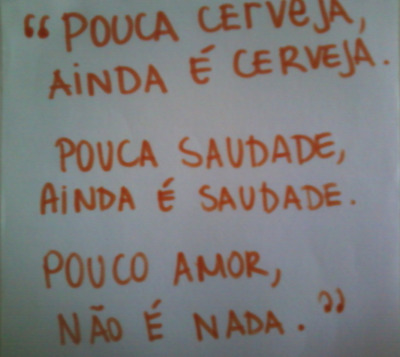 “POUCA CERVEJA,
AINDA É CERVEJA.
POUCA SAUDADE,
AINDA É SAUDADE.
POUCO AMOR,
NÃO É NADA.”